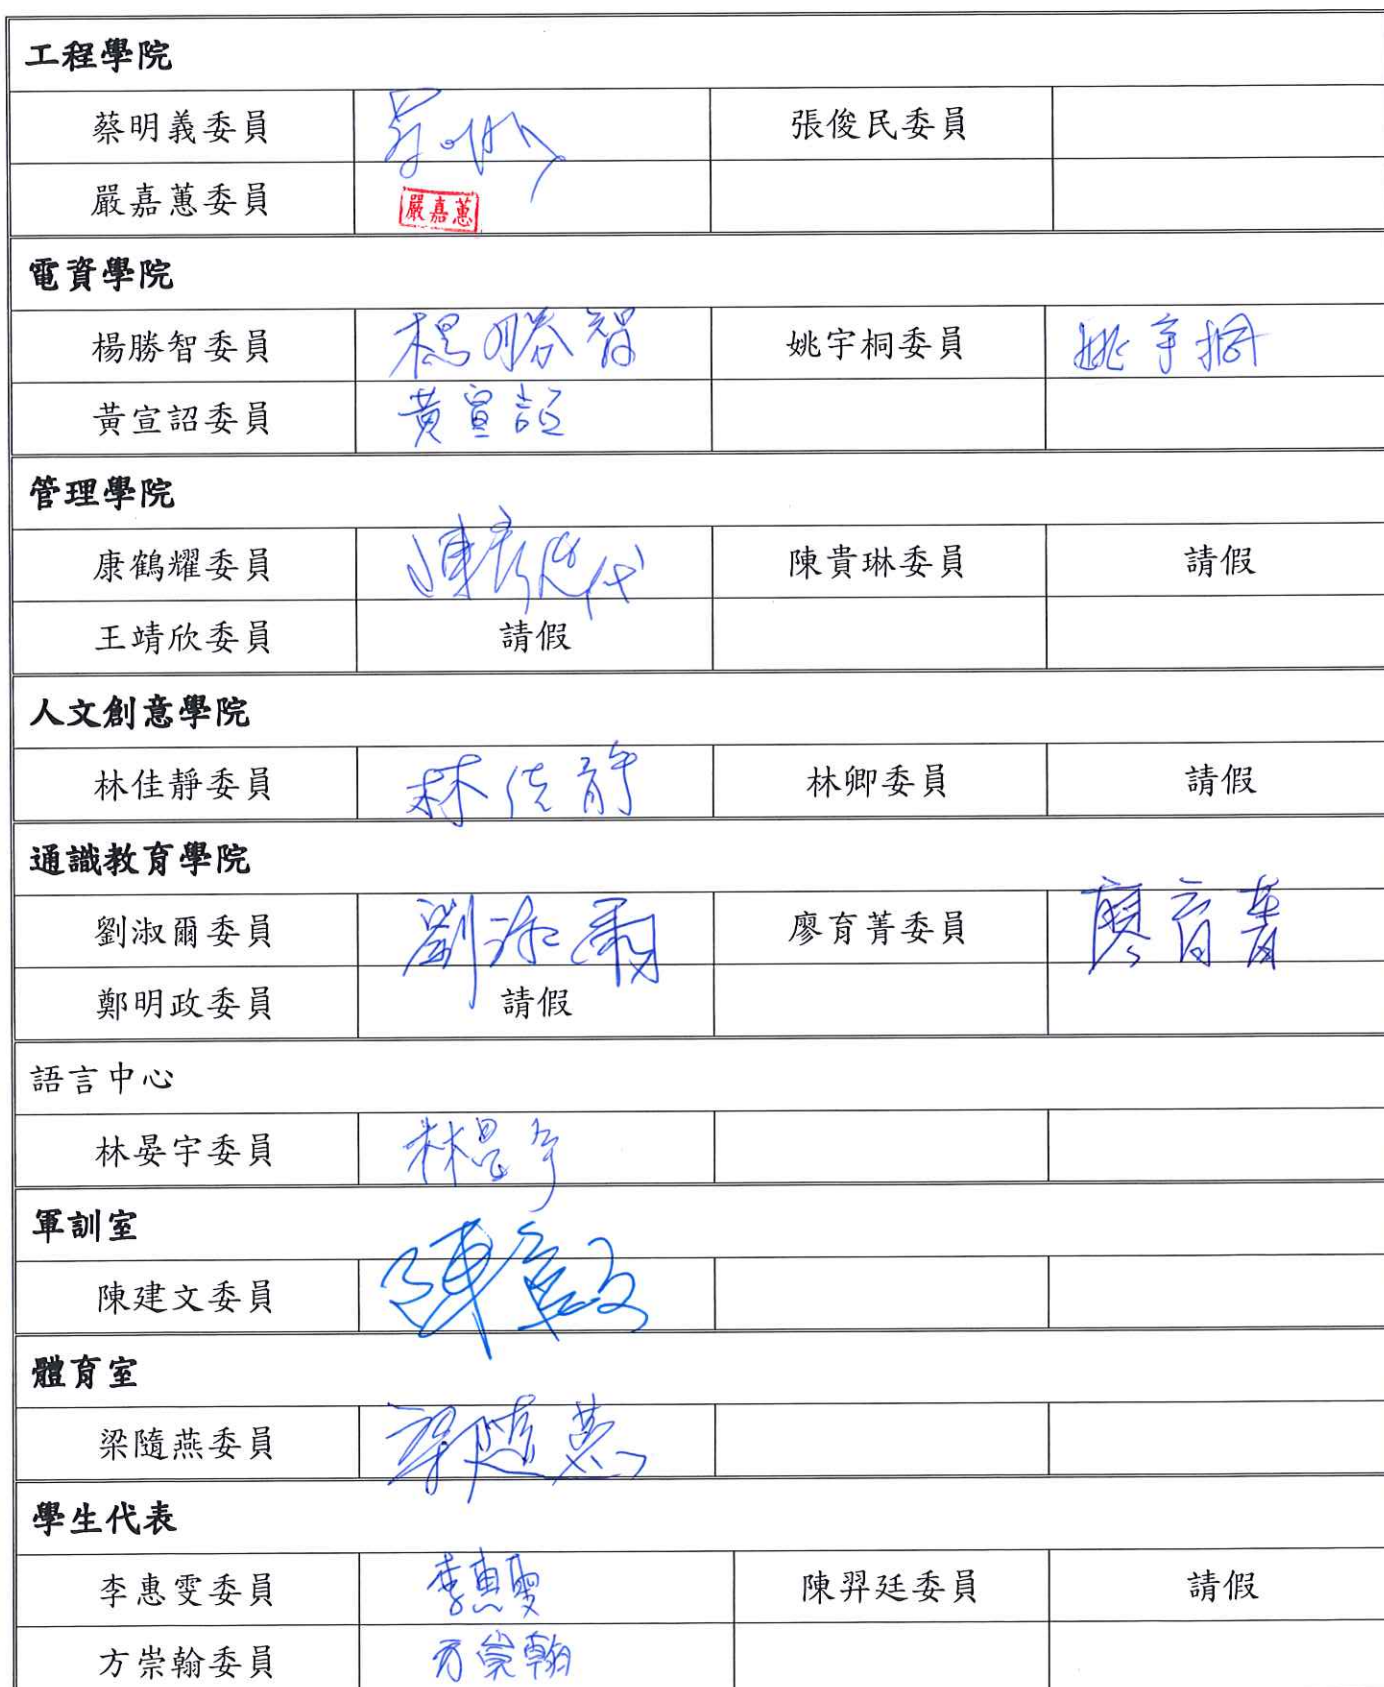 工程學院
蔡明義委員 張俊民委員
嚴嘉蕙委員 嚴嘉蕙
電資學院
楊勝智委員 楊勝智 姚宇桐委員 姚宇桐
黃宣詔委員 黃宣詔
管理學院
康鶴耀委員 代 陳貴琳委員 請假
王靖欣委員 請假
人文創意學院
林佳靜委員 林佳靜 林卿委員 請假
通識教育學院
劉淑爾委員 劉淑爾 廖育菁委員 廖育菁
鄭明政委員 請假
語言中心
林晏宇委員 林晏宇
軍訓室
陳建文委員 陳建文
體育室
梁隨燕委員 梁隨燕
學生代表
李惠雯委員 李惠雯 陳羿廷委員 請假
方崇翰委員 方崇翰